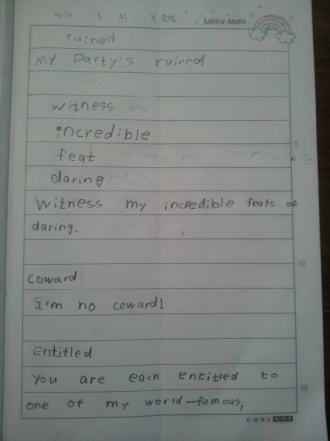 happy dream
ruined
My Party's ruined
witness
incredible
feat
daring
Witness my incredible feats of
daring.
10
coward
I'm no coward!
entitled
You are each entitled to
15
one of my world-famous,